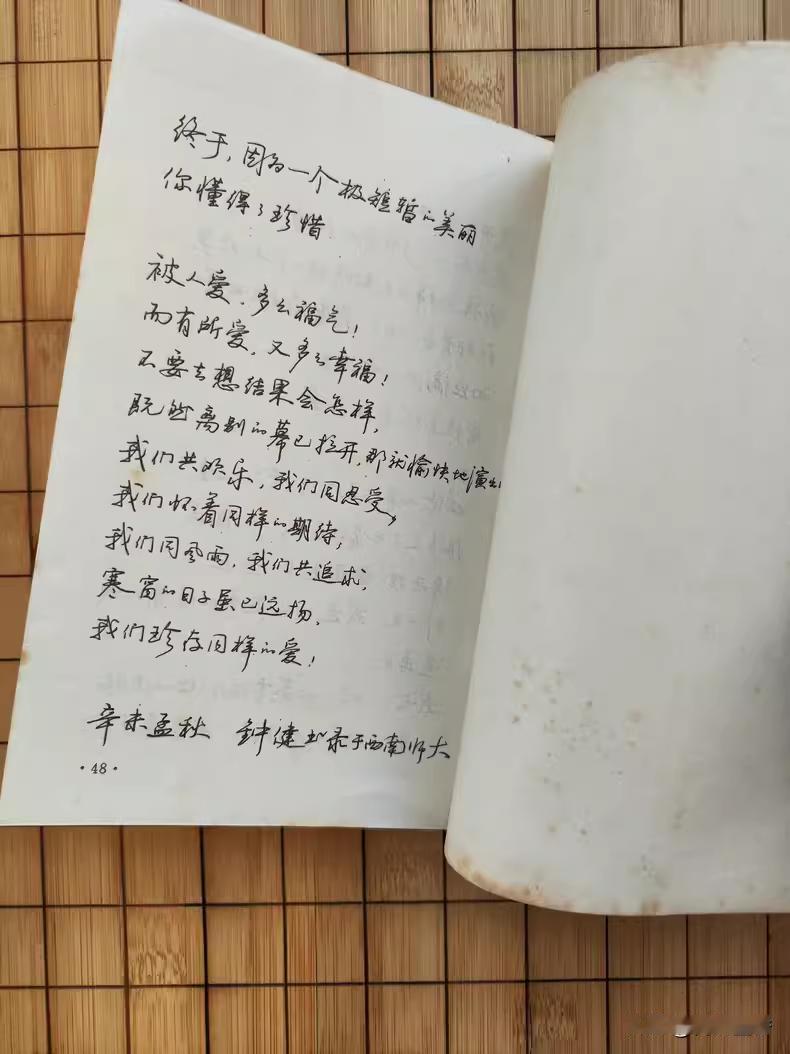 终于,因为一个极短暂的美丽
你懂得了珍惜.
被人爱,多么福气!
而有所爱,又多么幸福!
不要去想结果会怎样,
既然离别的幕已拉开,那就愉快地演出
我们共欢乐,我们同忍受,
我们怀着同样的期待;
我们同风雨,我们共追求,
寒窗的日子虽已远扬,
我们珍存同样的爱!
辛未孟秋 钟健书录于西南师大
·48·